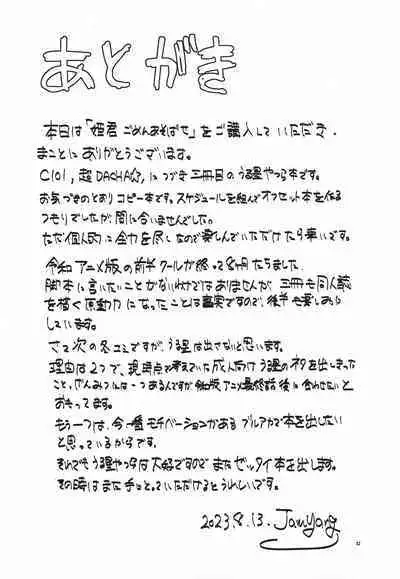 あとがき
本日は「姫君ごめんあそばせ」をご購入していただき、
まことにありがとうございます。
C101, 超DACHA☆, につづき三冊目のうる星やつら本です。
お気づきのとおりコピー本です。スケジュールを組んでオフセット本を作る
つもりでしたが、間に合いませんでした。
ただ個人的に全力を尽くしたので楽しんでいただけたら幸いです。
令和アニメ版の前半クールが終って8ヶ月たちました。
脚本に言いたいことがないわけではありませんが、三冊も同人誌
を描く原動力になったことは事実ですので、後半も楽しみに
しています。
さて次の冬コミですが、うる星は出さないと思います。
理由は2つで、現時点で考えていた成人向けうる星のネタを出しきった
こと。げんみつには一つあるんですが令和版アニメ最終話後に合わせたいと
おもってます。
もう一つは、今一番モチベーションがあるブルアカで本を出したい
と思っているからです。
それでもうる星やつらは大好ですのでまたゼッタイ本を出します。
その時はまた手にとっていただけるとうれしいです。
2023.8.13.